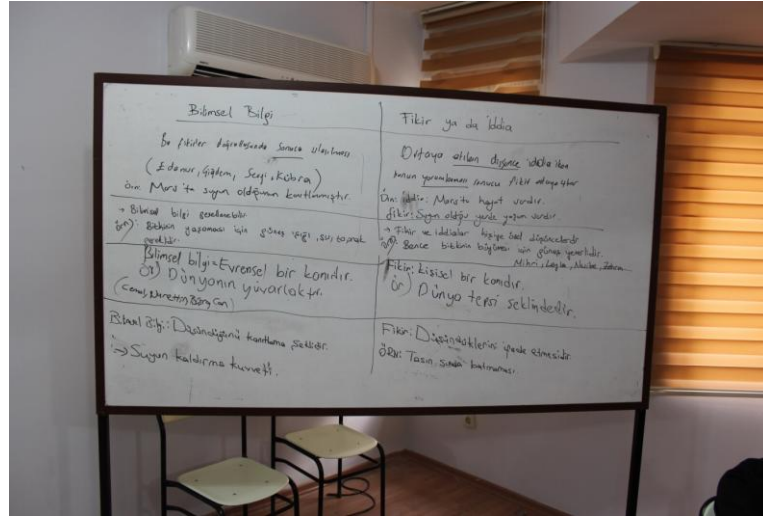 Bilimsel Bilgi
Bu fikirler doğrultusunda sonuca ulaşılması
(Edanur, Çiğdem, Sevgi, Kübra)
Örn: Mars'ta suyun olduğunun kanıtlanmıştır.
→ Bilimsel bilgi genellenebilir.
Ör): Bitkinin yaşaması için güneş ışığı, su, toprak
gereklidir.
Bilimsel bilgi = Evrensel bir konudır.
Ör) Dünyanın yuvarlaktır.
(Cemal, Nurettin
Bilimsel Bilgi: Düşündüğünü kanıtlama şeklidir.
→ Suyun kaldırma kuvveti.
Fikir ya da İddia
Ortaya atılan düşünce iddia iken
bunun yorumlanması sonucu fikir ortaya çıkar
Örn: İddia: Mars'ta hayat vardır.
fikir: Suyun olduğu yerde yaşam vardır.
→ Fikir ve iddialar kişiye özel düşüncelerdir
Ör): Bence bitkinin büyümesi için güneş yeterlidir.
Fikir: kişisel bir konudır.
Ör) Dünya tepsi şeklindedir.
Fikir: Düşündüklerini ifade etmesidir.
ÖRN: Taşın suda batmaması.